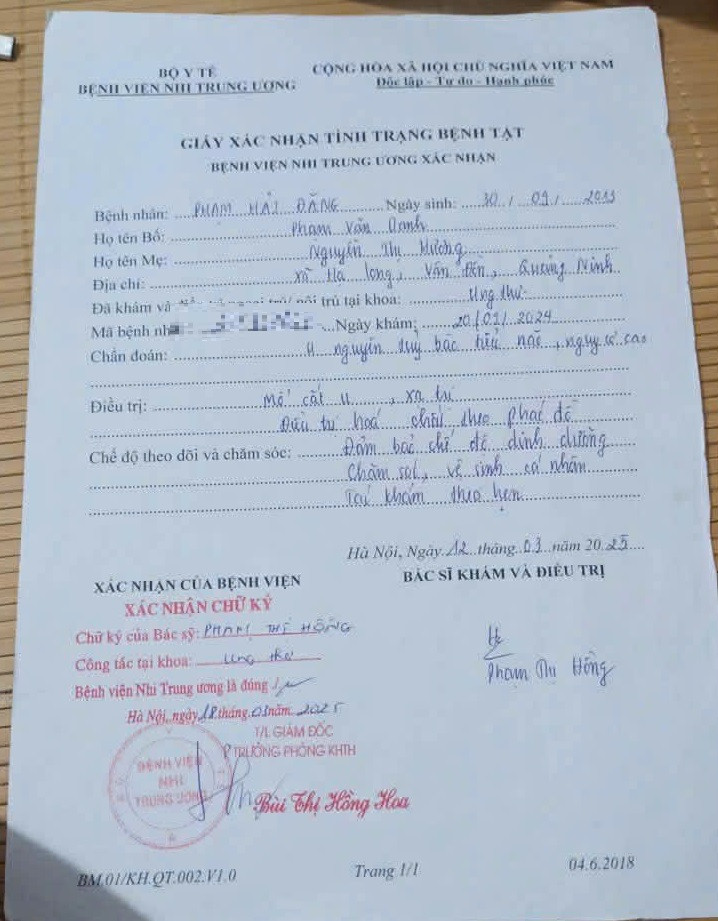 BỘ Y TẾ
BỆNH VIỆN NHI TRUNG ƯƠNG
CỘNG HÒA XÃ HỘI CHỦ NGHĨA VIỆT NAM
Độc lập - Tự do - Hạnh phúc
GIẤY XÁC NHẬN TÌNH TRẠNG BỆNH TẬT
BỆNH VIỆN NHI TRUNG ƯƠNG XÁC NHẬN
Bệnh nhân: PHẠM HẢI ĐĂNG Ngày sinh: 30/09/2013
Họ tên Bố: Phạm Văn Oanh
Họ tên Mẹ: Nguyễn Thị Hương
Địa chỉ: xã Hạ long, Vân Đồn, Quảng Ninh
Đã khám và trú tại khoa: Ung thư
Mã bệnh Ngày khám: 20/09/2024
Chẩn đoán: U nguyên tuỷ bào tiểu não, nguy cơ cao
Điều trị: Mổ cắt u, xạ trị
Điều trị hoá chất theo phác đồ
Chế độ theo dõi và chăm sóc: Đảm bảo chế độ dinh dưỡng
Chăm sóc, vệ sinh cá nhân
Tái khám theo hẹn
Hà Nội, Ngày 12 tháng 03 năm 2025
XÁC NHẬN CỦA BỆNH VIỆN
BÁC SĨ KHÁM VÀ ĐIỀU TRỊ
XÁC NHẬN CHỮ KÝ
Chữ ký của Bác sỹ: PHẠM THỊ HỒNG
Công tác tại khoa: Ung thư
Bệnh viện Nhi Trung ương là đúng
Hà Nội, ngày 18 tháng 03 năm 2025
T/L GIÁM ĐỐC
P TRƯỞNG PHÒNG KHTH
BỆNH VIỆN
NHI
TRUNG ƯƠNG
Bùi Thị Hồng Hoa
Phạm Thị Hồng
BM.01/KH.QT.002.V1.0
Trang 1/1
04.6.2018